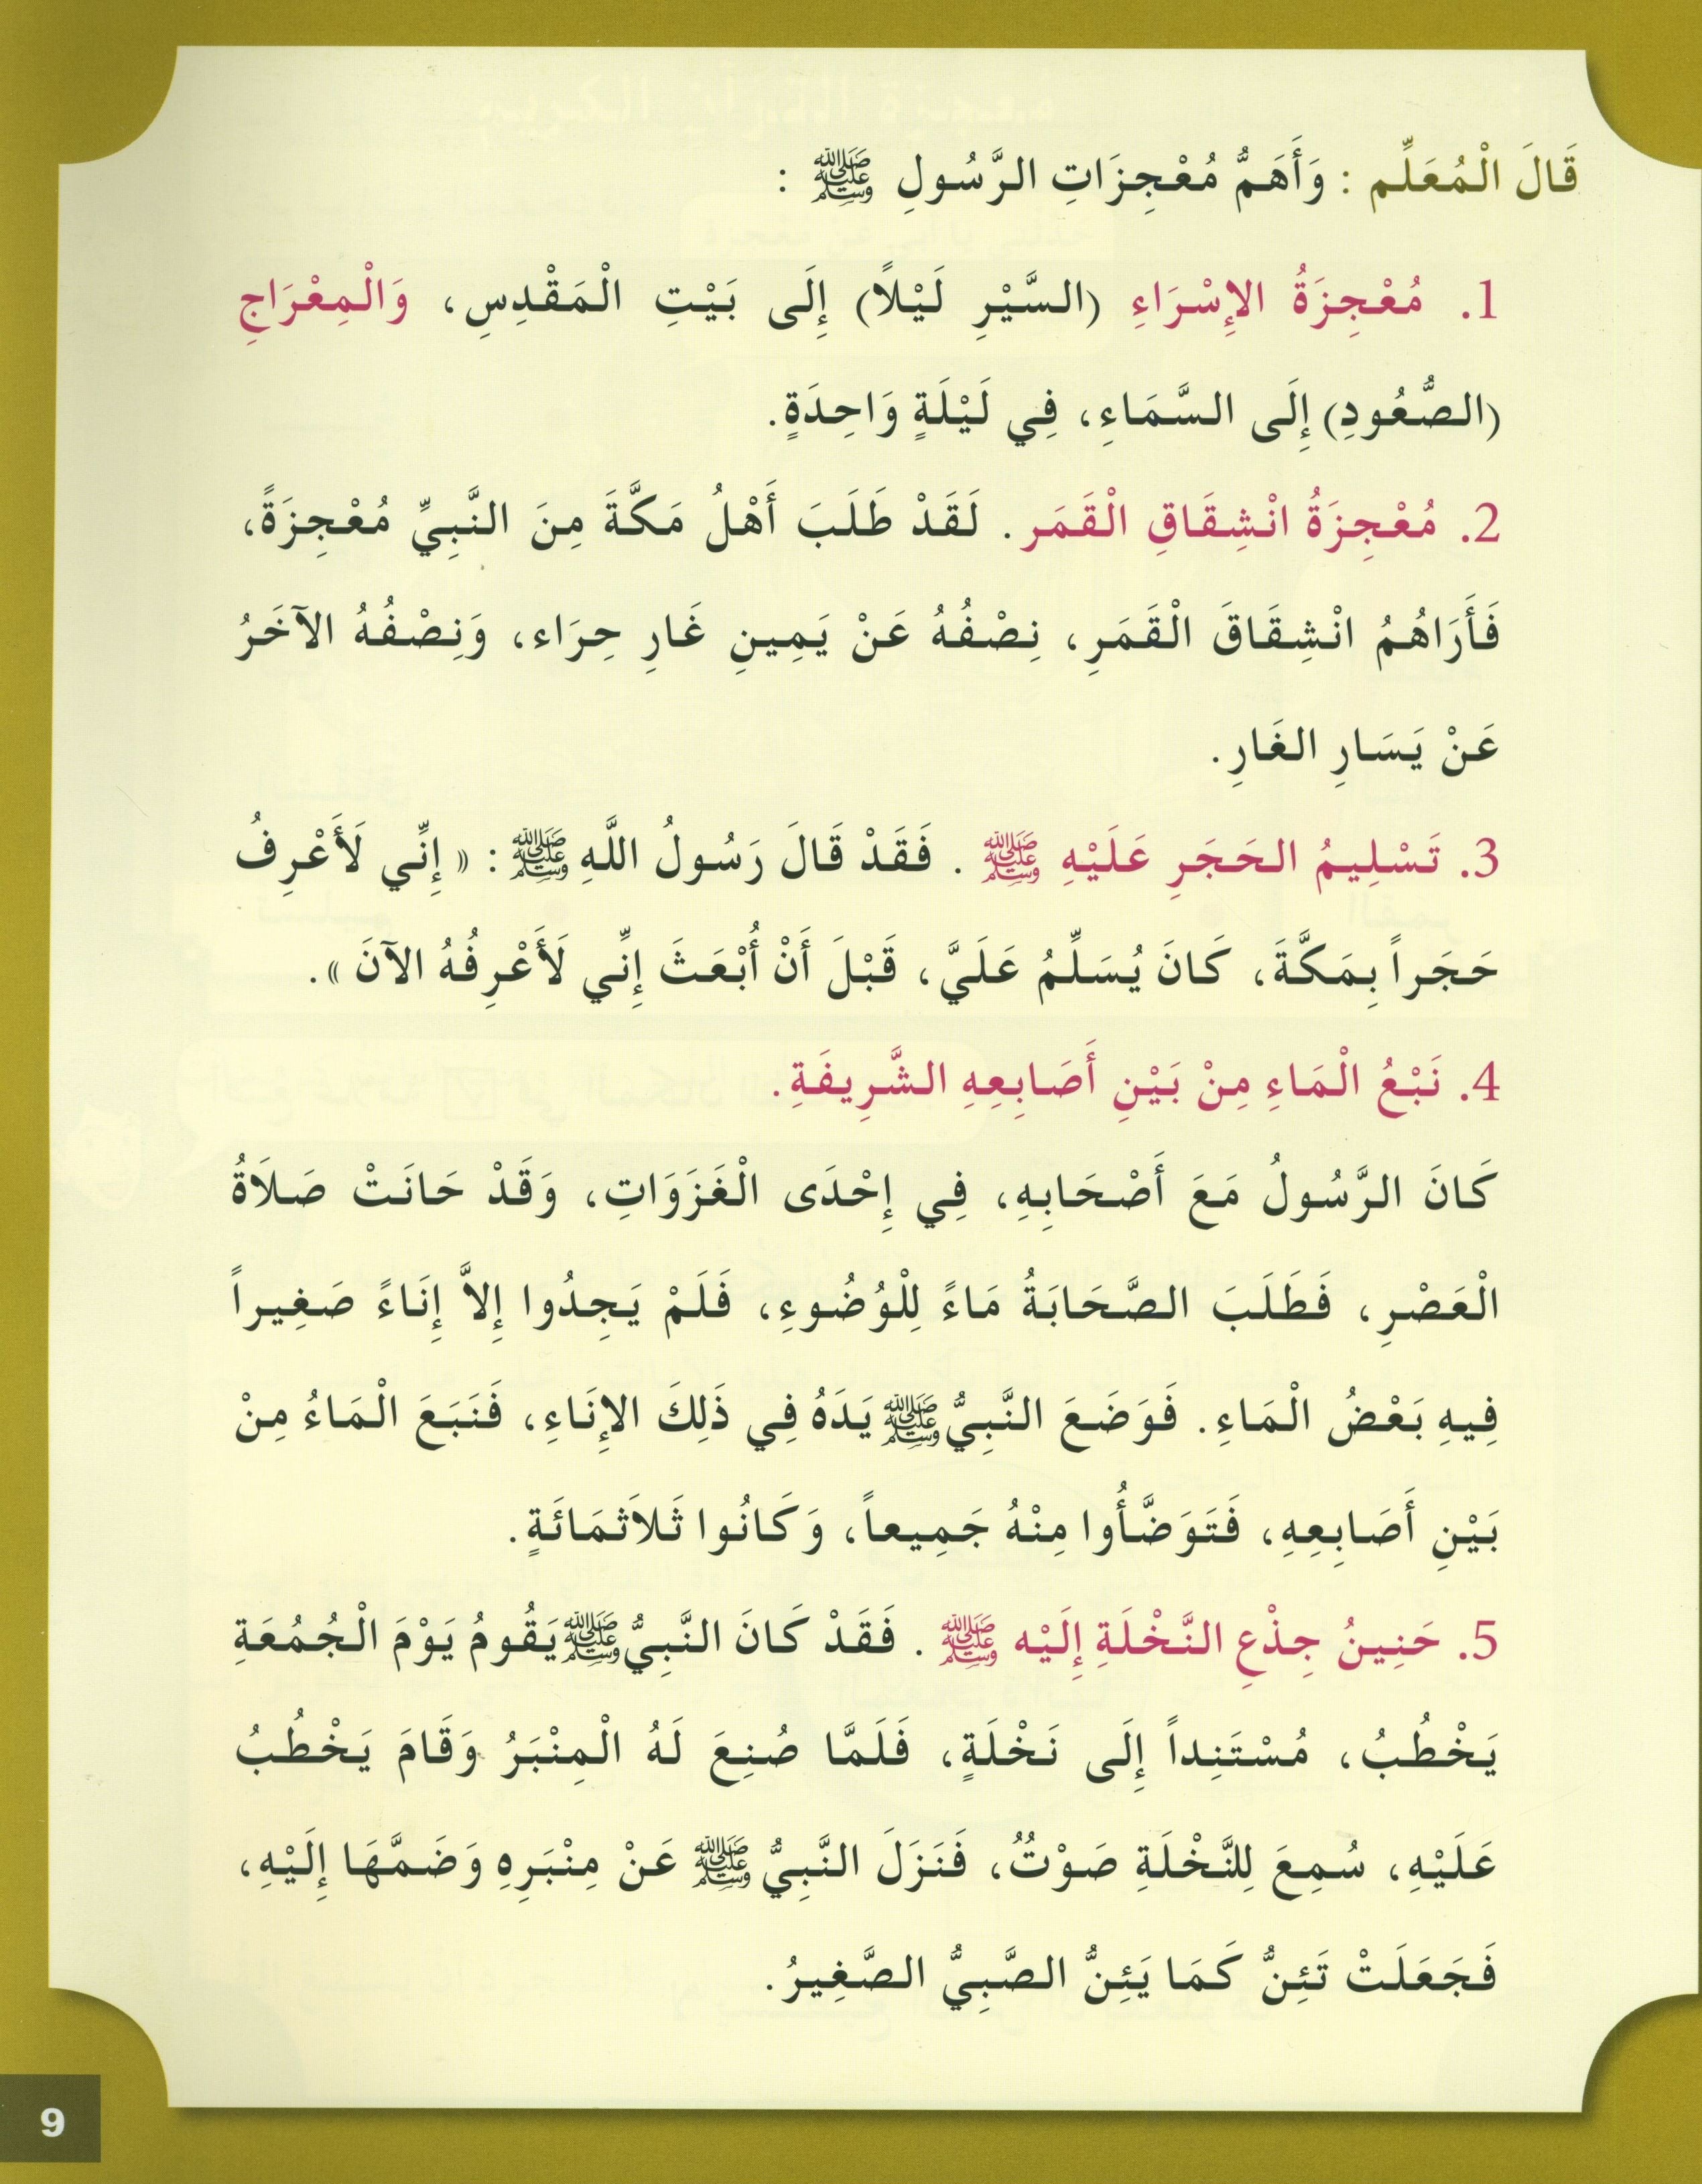 قَالَ الْمُعَلِّم : وَأَهَمُّ مُعْجِزَاتِ الرَّسُولِ ﷺ :
1. مُعْجِزَةُ الإِسْرَاءِ (السَّيْرِ لَيْلاً) إِلَى بَيْتِ الْمَقْدِسِ، وَالْمِعْرَاجِ
(الصُّعُودِ) إِلَى السَّمَاءِ، فِي لَيْلَةٍ وَاحِدَةٍ.
2. مُعْجِزَةُ انْشِقَاقِ الْقَمَرِ. لَقَدْ طَلَبَ أَهْلُ مَكَّةَ مِنَ النَّبِيِّ مُعْجِزَةً،
فَأَرَاهُمُ انْشِقَاقَ الْقَمَرِ، نِصْفُهُ عَنْ يَمِينِ غَارِ حِرَاء، وَنِصْفُهُ الآخَرُ
عَنْ يَسَارِ الغَارِ.
3. تَسْلِيمُ الحَجَرِ عَلَيْهِ ﷺ . فَقَدْ قَالَ رَسُولُ اللَّهِ ﷺ : « إِنِّي لَأَعْرِفُ
حَجَراً بِمَكَّةَ، كَانَ يُسَلِّمُ عَلَيَّ، قَبْلَ أَنْ أُبْعَثَ إِنِّي لَأَعْرِفُهُ الآنَ ».
4. نَبْعُ الْمَاءِ مِنْ بَيْنِ أَصَابِعِهِ الشَّرِيفَةِ.
كَانَ الرَّسُولُ مَعَ أَصْحَابِهِ، فِي إِحْدَى الْغَزَوَاتِ، وَقَدْ حَانَتْ صَلاَةُ
الْعَصْرِ، فَطَلَبَ الصَّحَابَةُ مَاءً لِلْوُضُوءِ، فَلَمْ يَجِدُوا إِلاَّ إِنَاءً صَغِيراً
فِيهِ بَعْضُ الْمَاءِ. فَوَضَعَ النَّبِيُّ ﷺ يَدَهُ فِي ذَلِكَ الإِنَاءِ، فَنَبَعَ الْمَاءُ مِنْ
بَيْنِ أَصَابِعِهِ، فَتَوَضَّأُوا مِنْهُ جَمِيعاً، وَكَانُوا ثَلاَثَمَائَةٍ.
5. حَنِينُ جِذْعِ النَّخْلَةِ إِلَيْه ﷺ . فَقَدْ كَانَ النَّبِيُّ ﷺ يَقُومُ يَوْمَ الْجُمُعَةِ
يَخْطُبُ، مُسْتَنِداً إِلَى نَخْلَةٍ، فَلَمَّا صُنِعَ لَهُ الْمِنْبَرُ وَقَامَ يَخْطُبُ
عَلَيْهِ، سُمِعَ لِلنَّخْلَةِ صَوْتٌ، فَنَزَلَ النَّبِيُّ ﷺ عَنْ مِنْبَرِهِ وَضَمَّهَا إِلَيْهِ،
فَجَعَلَتْ تَئِنُّ كَمَا يَئِنُّ الصَّبِيُّ الصَّغِيرُ.
9